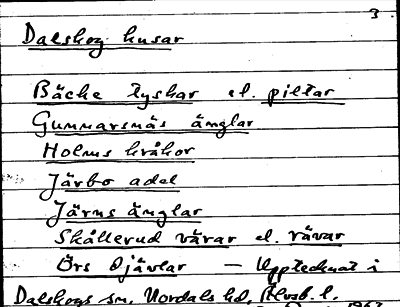 3
Dalskog husar
Bäcke tyskar el. piltar
Gunnarsnäs änglar
Holms kråkor
Järbo adel
Järns änglar
Skållerud värar el. rävar
Örs djävlar — Upptecknat i
Dalskogs sn, Nordals hd, Älvsb. l.
1967